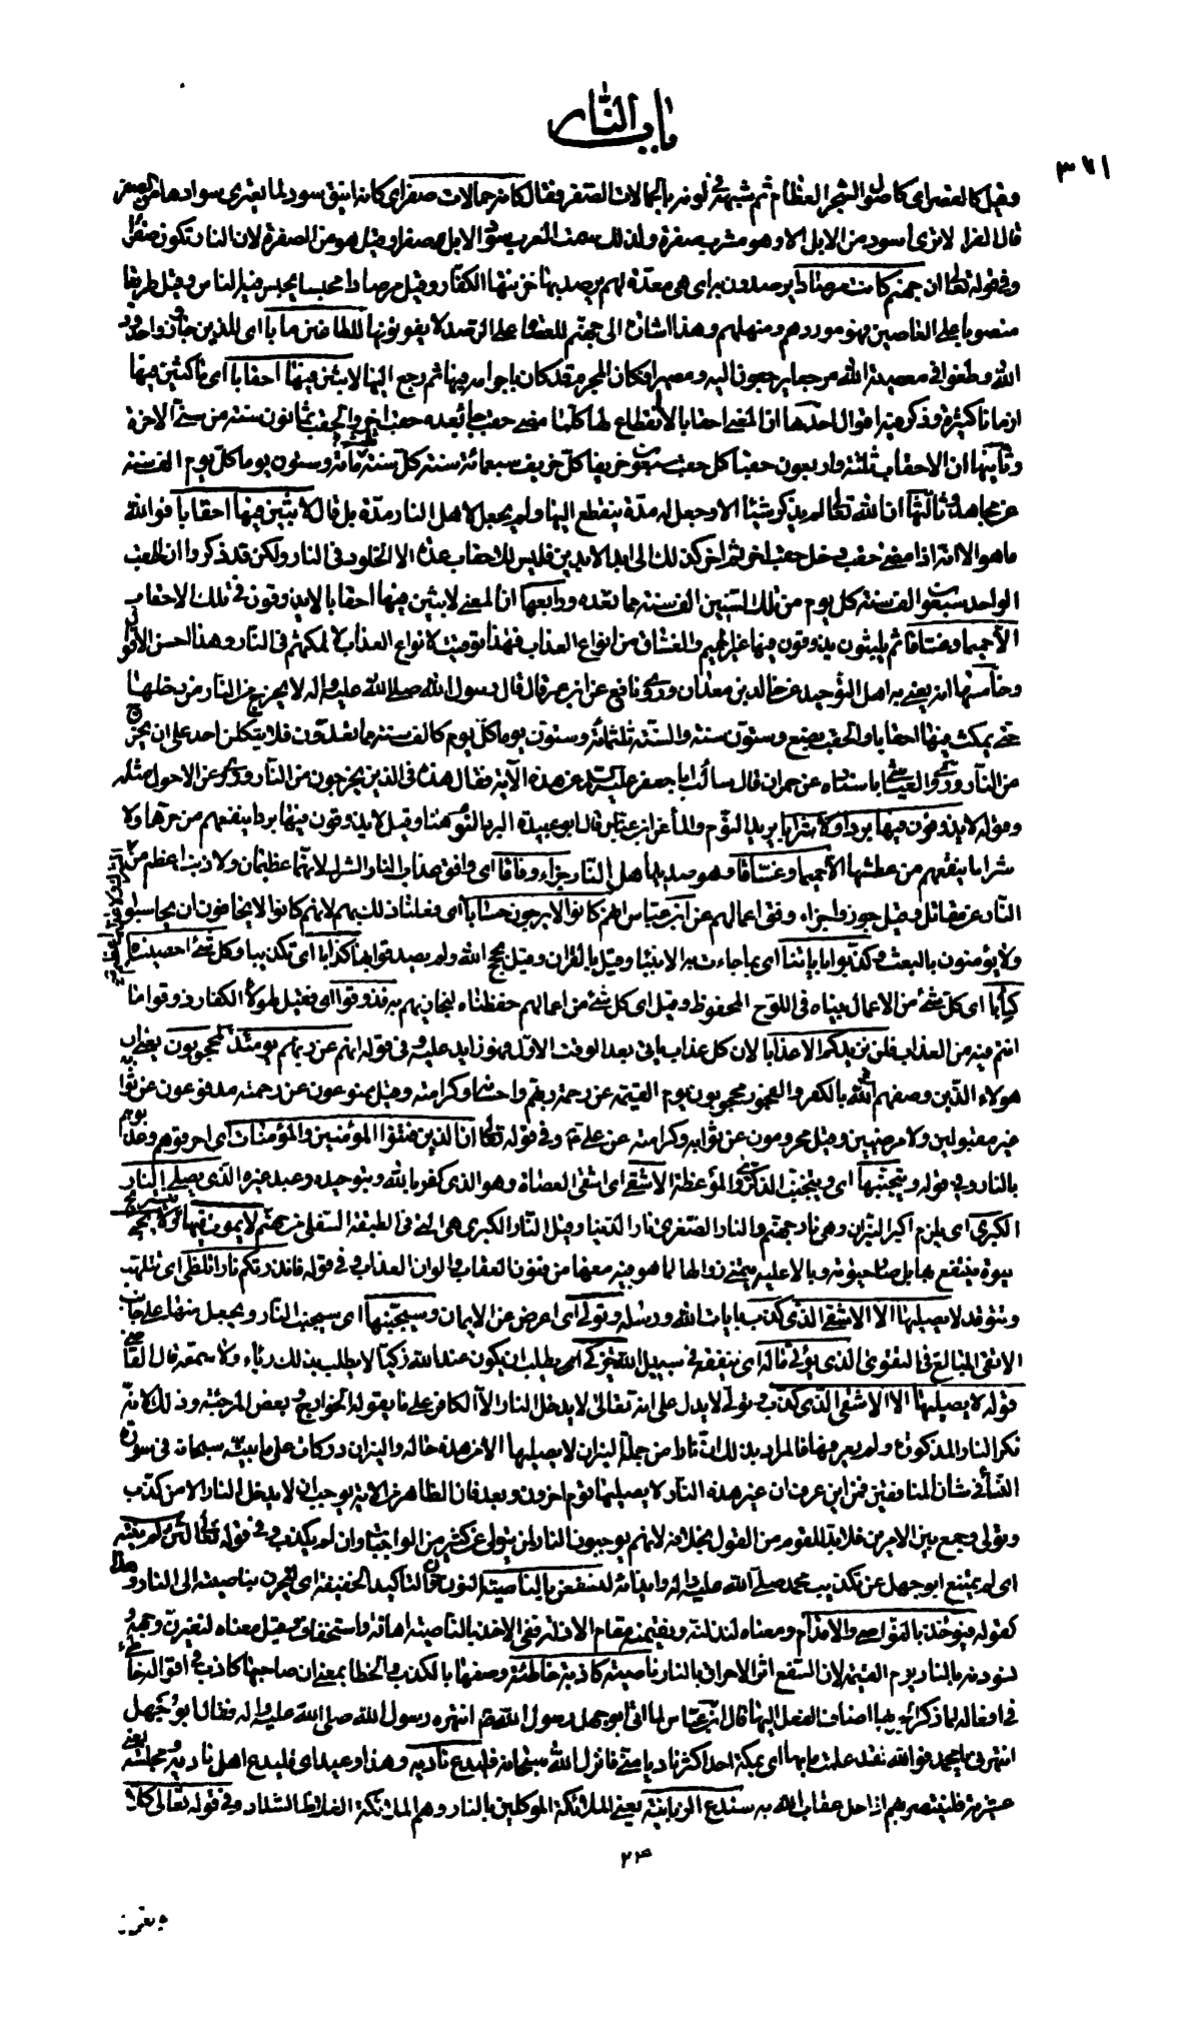 باب النار
٣٧١
وقيل كالقصر اى كاصول الشجر العظام ثم شبهه فى لونه بالجمالات الصفر فقال كانه جمالات صفر اى كانه اينق سود لما يعترى سوادها من الصفر
قال الفراء لا ترى اسود من الابل الا وهو مشرب صفرة ولذلك سمت العرب سود الابل صفرا وقيل هو من الصفرة لان النار تكون صفرا
وفى قوله تعالى ان جهنم كانت مرصادا يرصدون به اى هى معدة لهم يرصد بها خزنتها الكفار وقيل مرصادا محبسا يحبس فيه الناس وقيل طريقا
منصوبا على العاصين فهو موردهم ومنهلهم وهذا اشارة الى جهنم للعصاة على الرصد لا يفوتونها للطاغين مابا اى للذين جازوا حدود
الله وطغوا فى معصية الله مرجعا يرجعون اليه ومصيرا فكان المجرم قد كان باجرامه فيها ثم رجع اليها لابثين فيها احقابا اى ماكثين فيها
ازمانا كثيرة وذكر فيه اقوال احدها ان المعنى احقابا لا انقطاع لها كلما مضى حقب جاء بعده حقب اخر والحقب ثمانون سنة من سنى الاخرة
وثانيها ان الاحقاب ثلثة واربعون حقبا كل حقب سبعون خريفا كل خريف سبعمائة سنة كل سنة ثلثمائة وستون يوما كل يوم الف سنة
عن مجاهد وثالثها ان الله تعالى لم يذكر شيئا الا وجعل له مدة ينقطع اليها ولم يجعل لاهل النار مدة بل قال لابثين فيها احقابا فوالله
ما هو الا انه اذا مضى حقب دخل حقب اخر ثم اخر كذلك الى ابد الابدين فليس للاحقاب عدة الا الخلود فى النار ولكن قد ذكروا ان الحقب
الواحد سبعون الف سنة كل يوم من تلك السنين الف سنة مما تعده ورابعها ان المعنى لابثين فيها احقابا لا يذوقون فى تلك الاحقاب
الا حميما وغساقا ثم يلبثون يذوقون فيها غير الحميم والغساق من انواع العذاب فهذا توقيت لانواع العذاب لا لمكثهم فى النار وهذا احسن الاقوال
وخامسها انه يعنى به اهل التوحيد عن خالد بن معدان وروى نافع عن ابن عمر قال قال رسول الله صلى الله عليه واله لا يخرج من النار من دخلها
حتى يمكث فيها احقابا والحقب بضع وستون سنة والسنة ثلثمائة وستون يوما كل يوم كالف سنة مما تعدون فلا يتكلن احد على ان يخرج
من النار وروى العياشى باسناده عن حمران قال سألت ابا جعفر عليه السلام عن هذه الاية فقال هذه فى الذين يخرجون من النار وروى عن الاحول مثله
وقوله لا يذوقون فيها بردا ولا شرابا يريد النوم والماء عن ابن عباس قال ابو عبيدة البرد النوم هنا وقيل لا يذوقون فيها بردا ينفعهم من حرها ولا
شرابا ينفعهم من عطشها الا حميما وغساقا وهو صديد اهل النار جزاء وفاقا اى وافق عذاب النار الشرك لانهما عظيمان ولا ذنب اعظم من
الشرك ولا عذاب اعظم من
النار عن مقاتل وقيل جوزوا جزاء وفق اعمالهم عن ابن عباس انهم كانوا لا يرجون حسابا اى فعلنا ذلك بهم لانهم كانوا لا يخافون ان يحاسبوا
ولا يؤمنون بالبعث وكذبوا باياتنا اى بما جاءت به الانبياء وقيل بالقران وقيل بحجج الله ولم يصدقوا بها كذابا اى تكذيبا وكل شئ احصيناه
كتابا اى كل شئ من الاعمال بيناه فى اللوح المحفوظ وقيل اى كل شئ من اعمالهم حفظناه لنجازيهم به فذوقوا اى فقيل لهؤلاء الكفار ذوقوا ما
انتم فيه من العذاب فلن نزيدكم الا عذابا لان كل عذاب ياتى بعد الوقت الاول فهو زايد عليه وفى قوله انهم عن ربهم يومئذ لمحجوبون يعنى ان
هولاء الذين وصفهم الله بالكفر والفجور محجوبون يوم القيمة عن رحمة ربهم واحسانه وكرامته وقيل ممنوعون عن رحمته مدفوعون عن ثوابه
غير مقبولين ولا مرضيين وقيل محرومون عن ثوابه وكرامته عن على ع وفى قوله تعالى ان الذين فتنوا المؤمنين والمؤمنات اى احرقوهم وعذبوهم
بالنار وفى قوله ويتجنبها اى ويتجنب الذكرى والموعظة الاشقى اى اشقى العصاة وهو الذى كفر بالله وبتوحيده وعبد غيره الذى يصلى النار
الكبرى اى يلزم اكبر النيران وهى نار جهنم والنار الصغرى نار الدنيا وقيل النار الكبرى هى التى فى الطبقة السفلى من جهنم لا يموت فيها فيستريح ولا يحيى
حيوة ينتفع بها بل صارت حيوته وبالا عليه يتمنى زوالها لما هو فيه معها من فنون العقاب والوان العذاب وفى قوله فانذرتكم نارا تلظى اى تتلهب
وتتوقد لا يصليها الا الاشقى الذى كذب بايات الله ورسله وتولى اى اعرض عن الايمان وسيجنبها اى سيجنب النار ويجعل منها على جانب
الاتقى المبالغ فى التقوى الذى يؤتى ماله اى ينفقه فى سبيل الله يتزكى اى يطلب ان يكون عند الله زكيا لا يطلب بذلك رياء ولا سمعة قال القاضى
قوله لا يصليها الا الاشقى الذى كذب وتولى لا يدل على انه تعالى لا يدخل النار الا الكافر على ما يقوله الخوارج وبعض المرجئة وذلك لانه
نكر النار المذكورة ولم يعرفها فالمراد بذلك ان نارا من جملة النيران لا يصليها الا من هذه حاله والنيران دركات على ما بينه سبحانه فى سورة
النساء فى شأن المنافقين فمن اين عرف ان غير هذه النار لا يصليها قوم اخرون وبعد فان الظاهر من الاية يوجب ان لا يدخل النار الا من كذب
وتولى وجمع بين الامرين فلابد للقوم من القول بخلافه لانهم يوجبون النار لمن يتولى عن كثير من الواجبات وان لم يكذب وفى قوله تعالى لئن لم ينته
اى لم يمتنع ابو جهل عن تكذيب محمد صلى الله عليه واله وايذائه لنسفعن بالناصية النون للتاكيد الخفيفة اى لنجرن بناصيته الى النار وهذا
كقوله فيؤخذ بالنواصى والاقدام ومعناه لنذلنه ونقيمنه مقام الاذلة ففى الاخذ بالناصية اهانة واستخفاف وقيل معناه لنغيرن وجهه و
نسودنه بالنار يوم القيمة لان السفع اثر الاحراق بالنار ناصية كاذبة خاطئة وصفها بالكذب والخطا بمعنى ان صاحبها كاذب فى اقواله خاطئ
فى افعاله لما ذكر الجر بها اضاف الفعل اليها قال ابن عباس لما اتى ابو جهل رسول الله ص انتهره رسول الله صلى الله عليه واله فقال ابو جهل
انتهرنى يا محمد فوالله لقد علمت ما بها اى بمكة احد اكثر ناديا منى فانزل الله سبحانه فليدع ناديه وهذا وعيد اى فليدع اهل ناديه ومجلسه يعنى
عشيرته فلينتصر بهم اذا حل عقاب الله به سندع الزبانية يعنى الملائكة الموكلين بالنار وهم الملائكة الغلاظ الشداد وفى قوله تعالى كلا